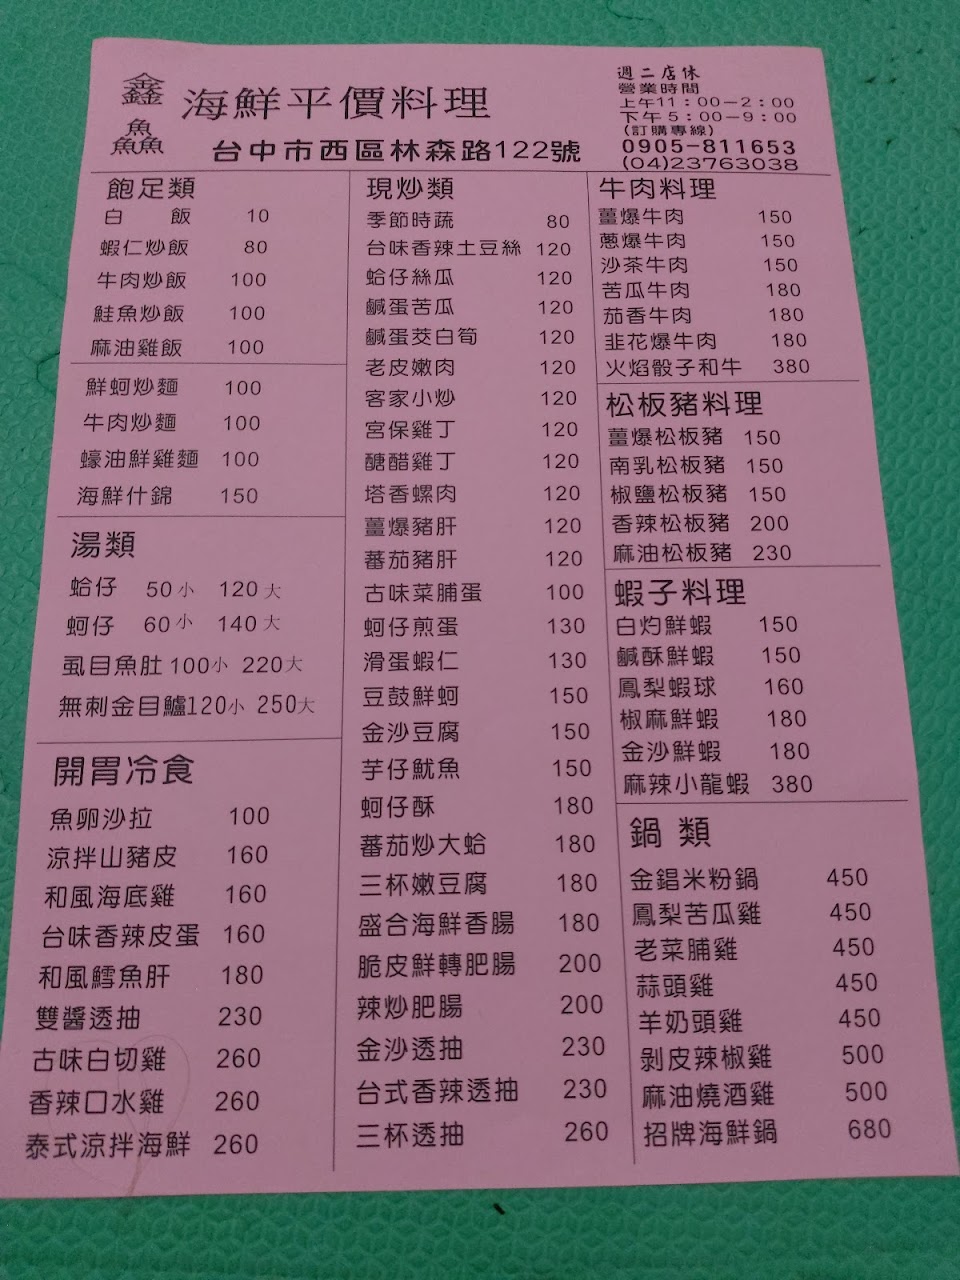 鑫鱻
海鮮平價料理
台中市西區林森路122號
週二店休
營業時間
上午11：00－2：00
下午5：00－9：00
(訂購專線)
0905-811653
(04)23763038
飽足類
白 飯 10
蝦仁炒飯 80
牛肉炒飯 100
鮭魚炒飯 100
麻油雞飯 100
鮮蚵炒麵 100
牛肉炒麵 100
蠔油鮮雞麵 100
海鮮什錦 150
湯類
蛤仔 50小 120大
蚵仔 60小 140大
虱目魚肚 100小 220大
無刺金目鱸120小 250大
開胃冷食
魚卵沙拉 100
涼拌山豬皮 160
和風海底雞 160
台味香辣皮蛋 160
和風鱈魚肝 180
雙醬透抽 230
古味白切雞 260
香辣口水雞 260
泰式涼拌海鮮 260
現炒類
季節時蔬 80
台味香辣土豆絲 120
蛤仔絲瓜 120
鹹蛋苦瓜 120
鹹蛋茭白筍 120
老皮嫩肉 120
客家小炒 120
宮保雞丁 120
醣醋雞丁 120
塔香螺肉 120
薑爆豬肝 120
蕃茄豬肝 120
古味菜脯蛋 100
蚵仔煎蛋 130
滑蛋蝦仁 130
豆鼓鮮蚵 150
金沙豆腐 150
芋仔魷魚 150
蚵仔酥 180
蕃茄炒大蛤 180
三杯嫩豆腐 180
盛合海鮮香腸 180
脆皮鮮轉肥腸 200
辣炒肥腸 200
金沙透抽 230
台式香辣透抽 230
三杯透抽 260
牛肉料理
薑爆牛肉 150
蔥爆牛肉 150
沙茶牛肉 150
苦瓜牛肉 180
茄香牛肉 180
韭花爆牛肉 180
火焰骰子和牛 380
松板豬料理
薑爆松板豬 150
南乳松板豬 150
椒鹽松板豬 150
香辣松板豬 200
麻油松板豬 230
蝦子料理
白灼鮮蝦 150
鹹酥鮮蝦 150
鳳梨蝦球 160
椒麻鮮蝦 180
金沙鮮蝦 180
麻辣小龍蝦 380
鍋 類
金錩米粉鍋 450
鳳梨苦瓜雞 450
老菜脯雞 450
蒜頭雞 450
羊奶頭雞 450
剝皮辣椒雞 500
麻油燒酒雞 500
招牌海鮮鍋 680